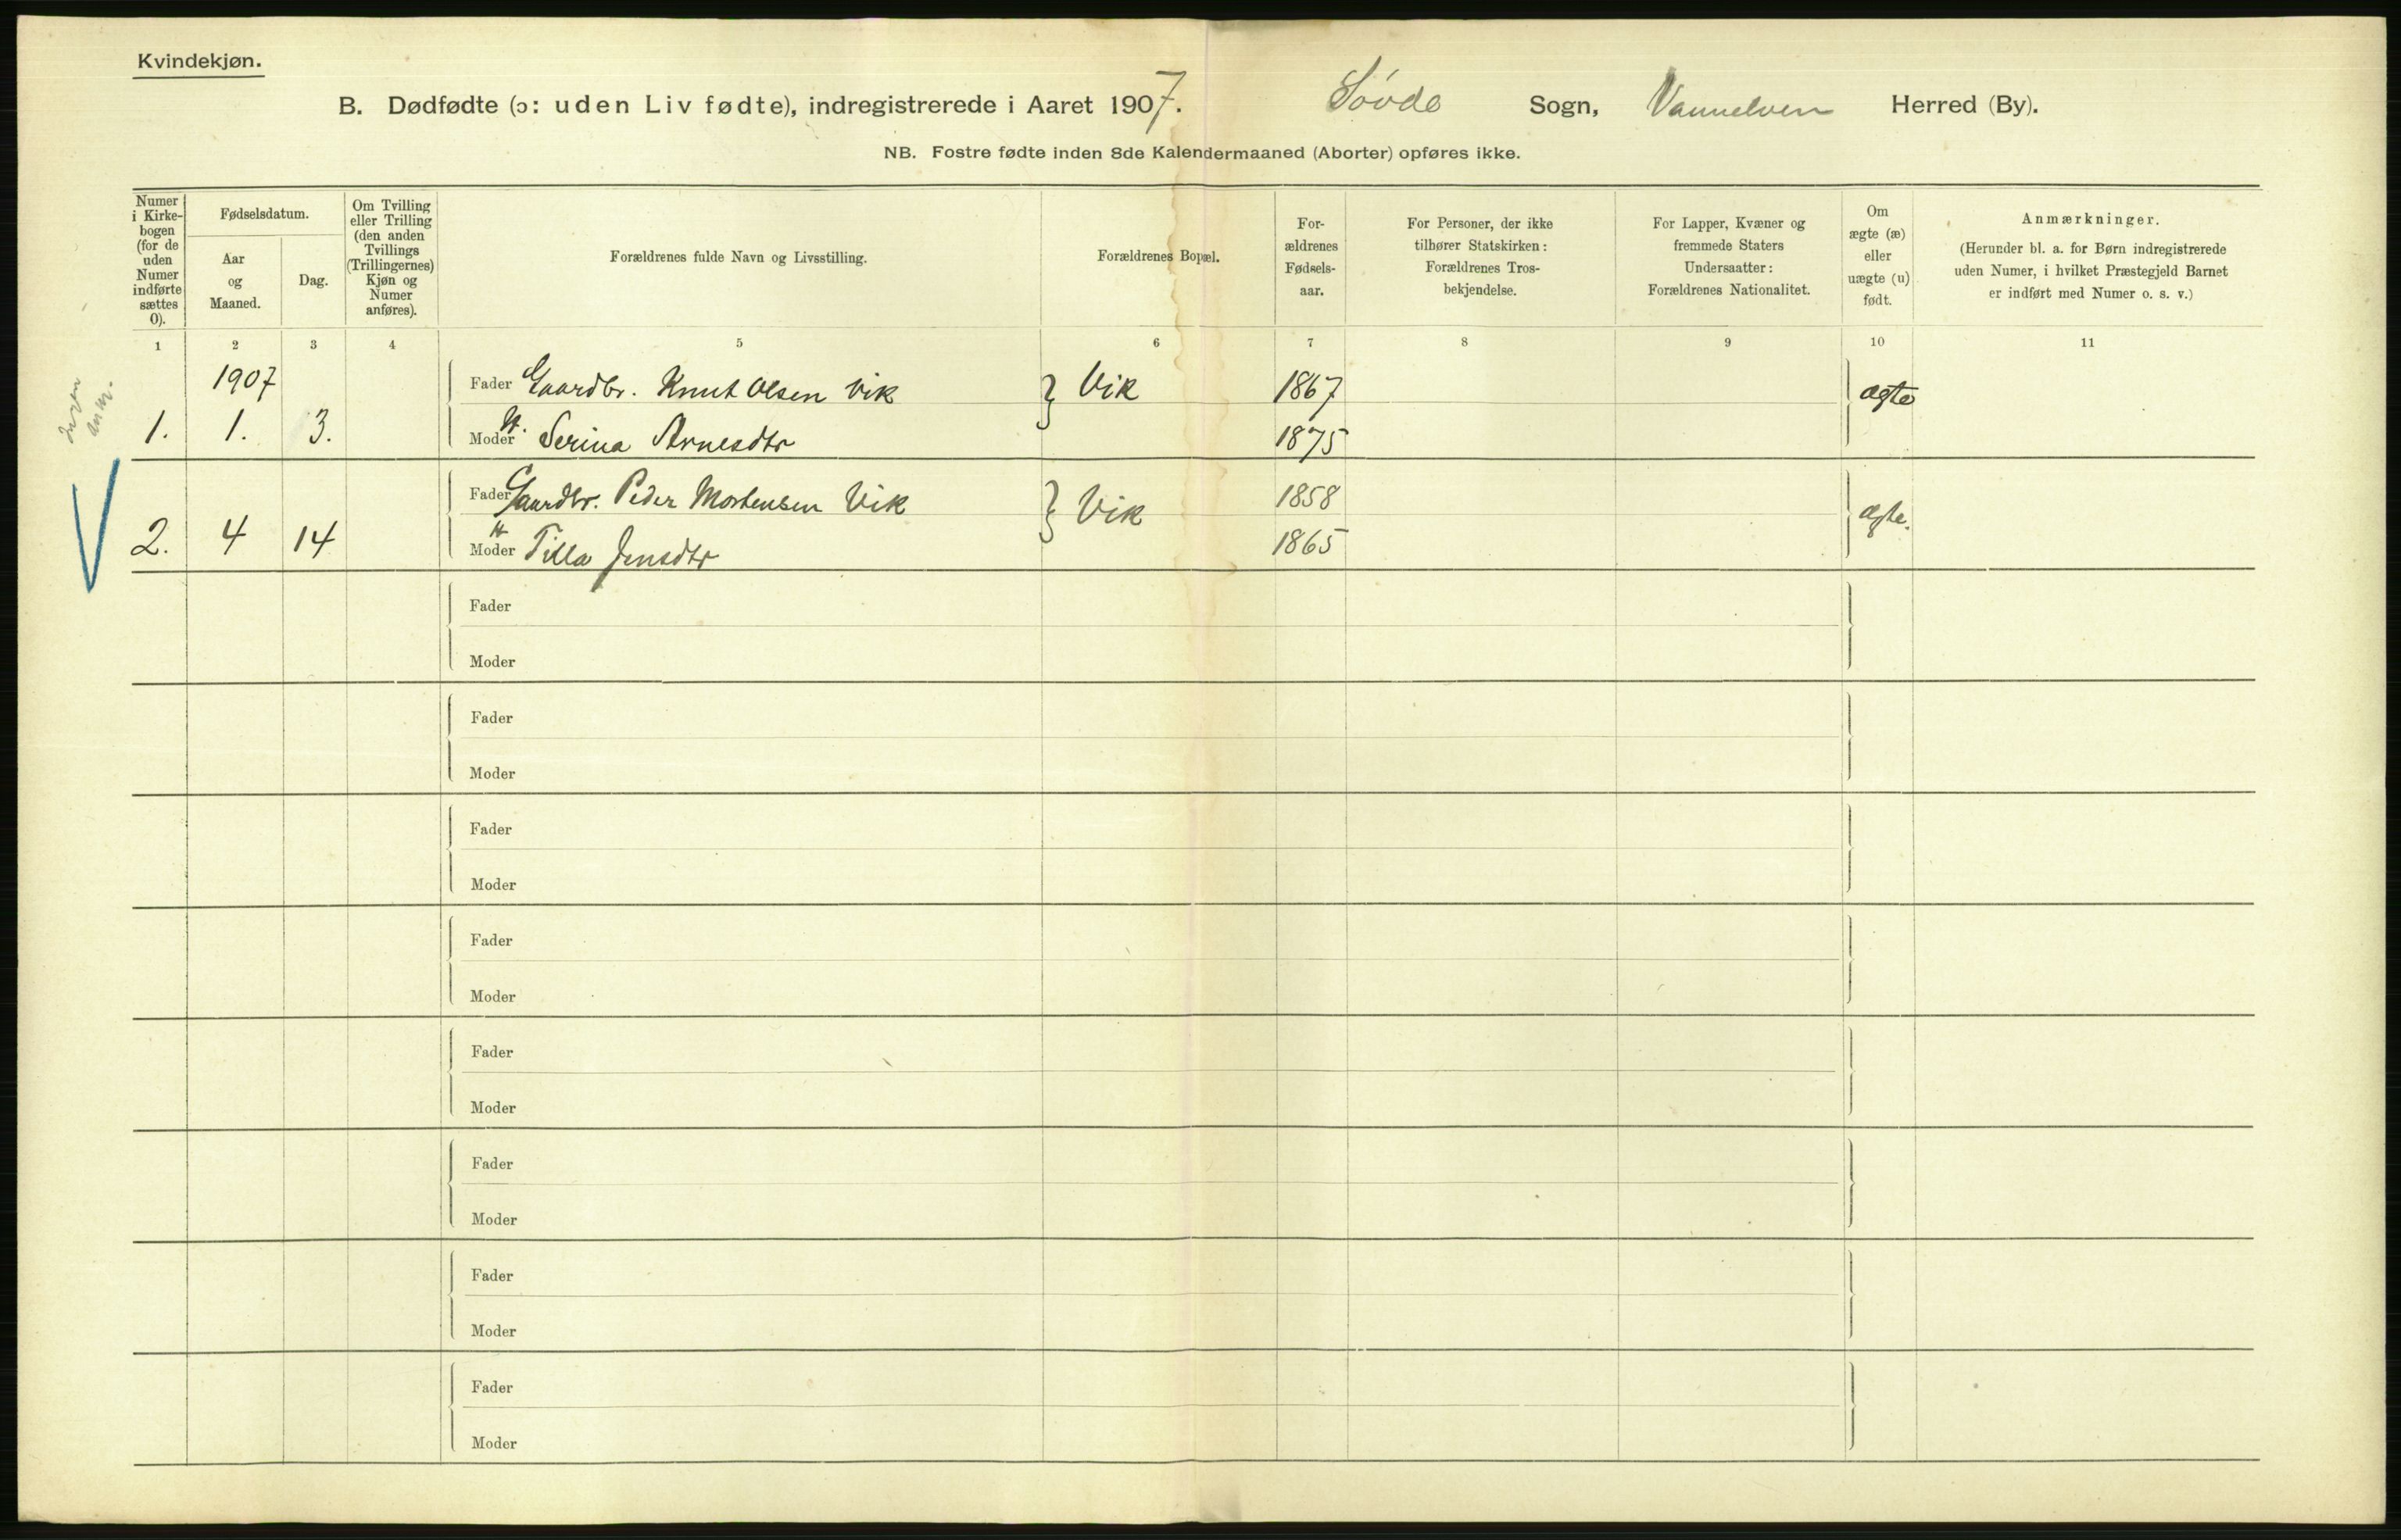 Kvindekjøn.
B. Dødfødte (ɔ: uden Liv fødte), indregistrerede i Aaret 1907. Søvde Sogn, Vannelven Herred (By).
NB. Fostre fødte inden 8de Kalendermaaned (Aborter) opføres ikke.
Numer i Kirke-bogen (for de uden Numer indførte sættes 0).
Fødselsdatum.
Aar og Maaned.
Dag.
Om Tvilling eller Trilling (den anden Tvillings (Trillingernes) Kjøn og Numer anføres).
Forældrenes fulde Navn og Livsstilling.
Forældrenes Bopæl.
For-ældrenes Fødsels-aar.
For Personer, der ikke tilhører Statskirken: Forældrenes Tros-bekjendelse.
For Lapper, Kvæner og fremmede Staters Undersaatter: Forældrenes Nationalitet.
Om ægte (æ) eller uægte (u) født.
Anmærkninger.
(Herunder bl. a. for Børn indregistrerede uden Numer, i hvilket Præstegjeld Barnet er indført med Numer o. s. v.)
1 2 3 4 5 6 7 8 9 10 11
1907 Fader Gaardbr. Knut Olsen Vik } Vik 1867 ægte
1. 1. 3. Moder H. Serina Arnesdtr 1875
Fader Gaardbr. Peder Mortensen Vik } Vik 1858 ægte.
2. 4 14 Moder H Tilla Jensdtr 1865
Fader
Moder
Fader
Moder
Fader
Moder
Fader
Moder
Fader
Moder
Fader
Moder
Fader
Moder
Fader
Moder